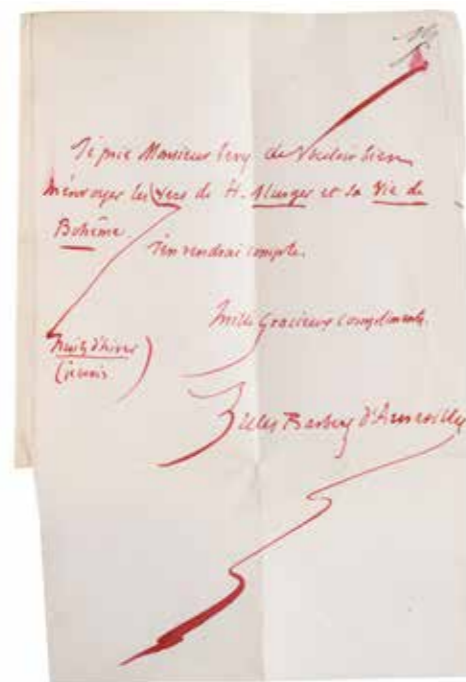 Je prie Monsieur Levy de Vouloir bien
m'envoyer les Vers de H. Murger et sa Vie de
Bohême.
J'en rendrai compte.
Mille Gracieux compliments.
Nuits d'hiver
(je crois)
Jules Barbey d'Aurevilly